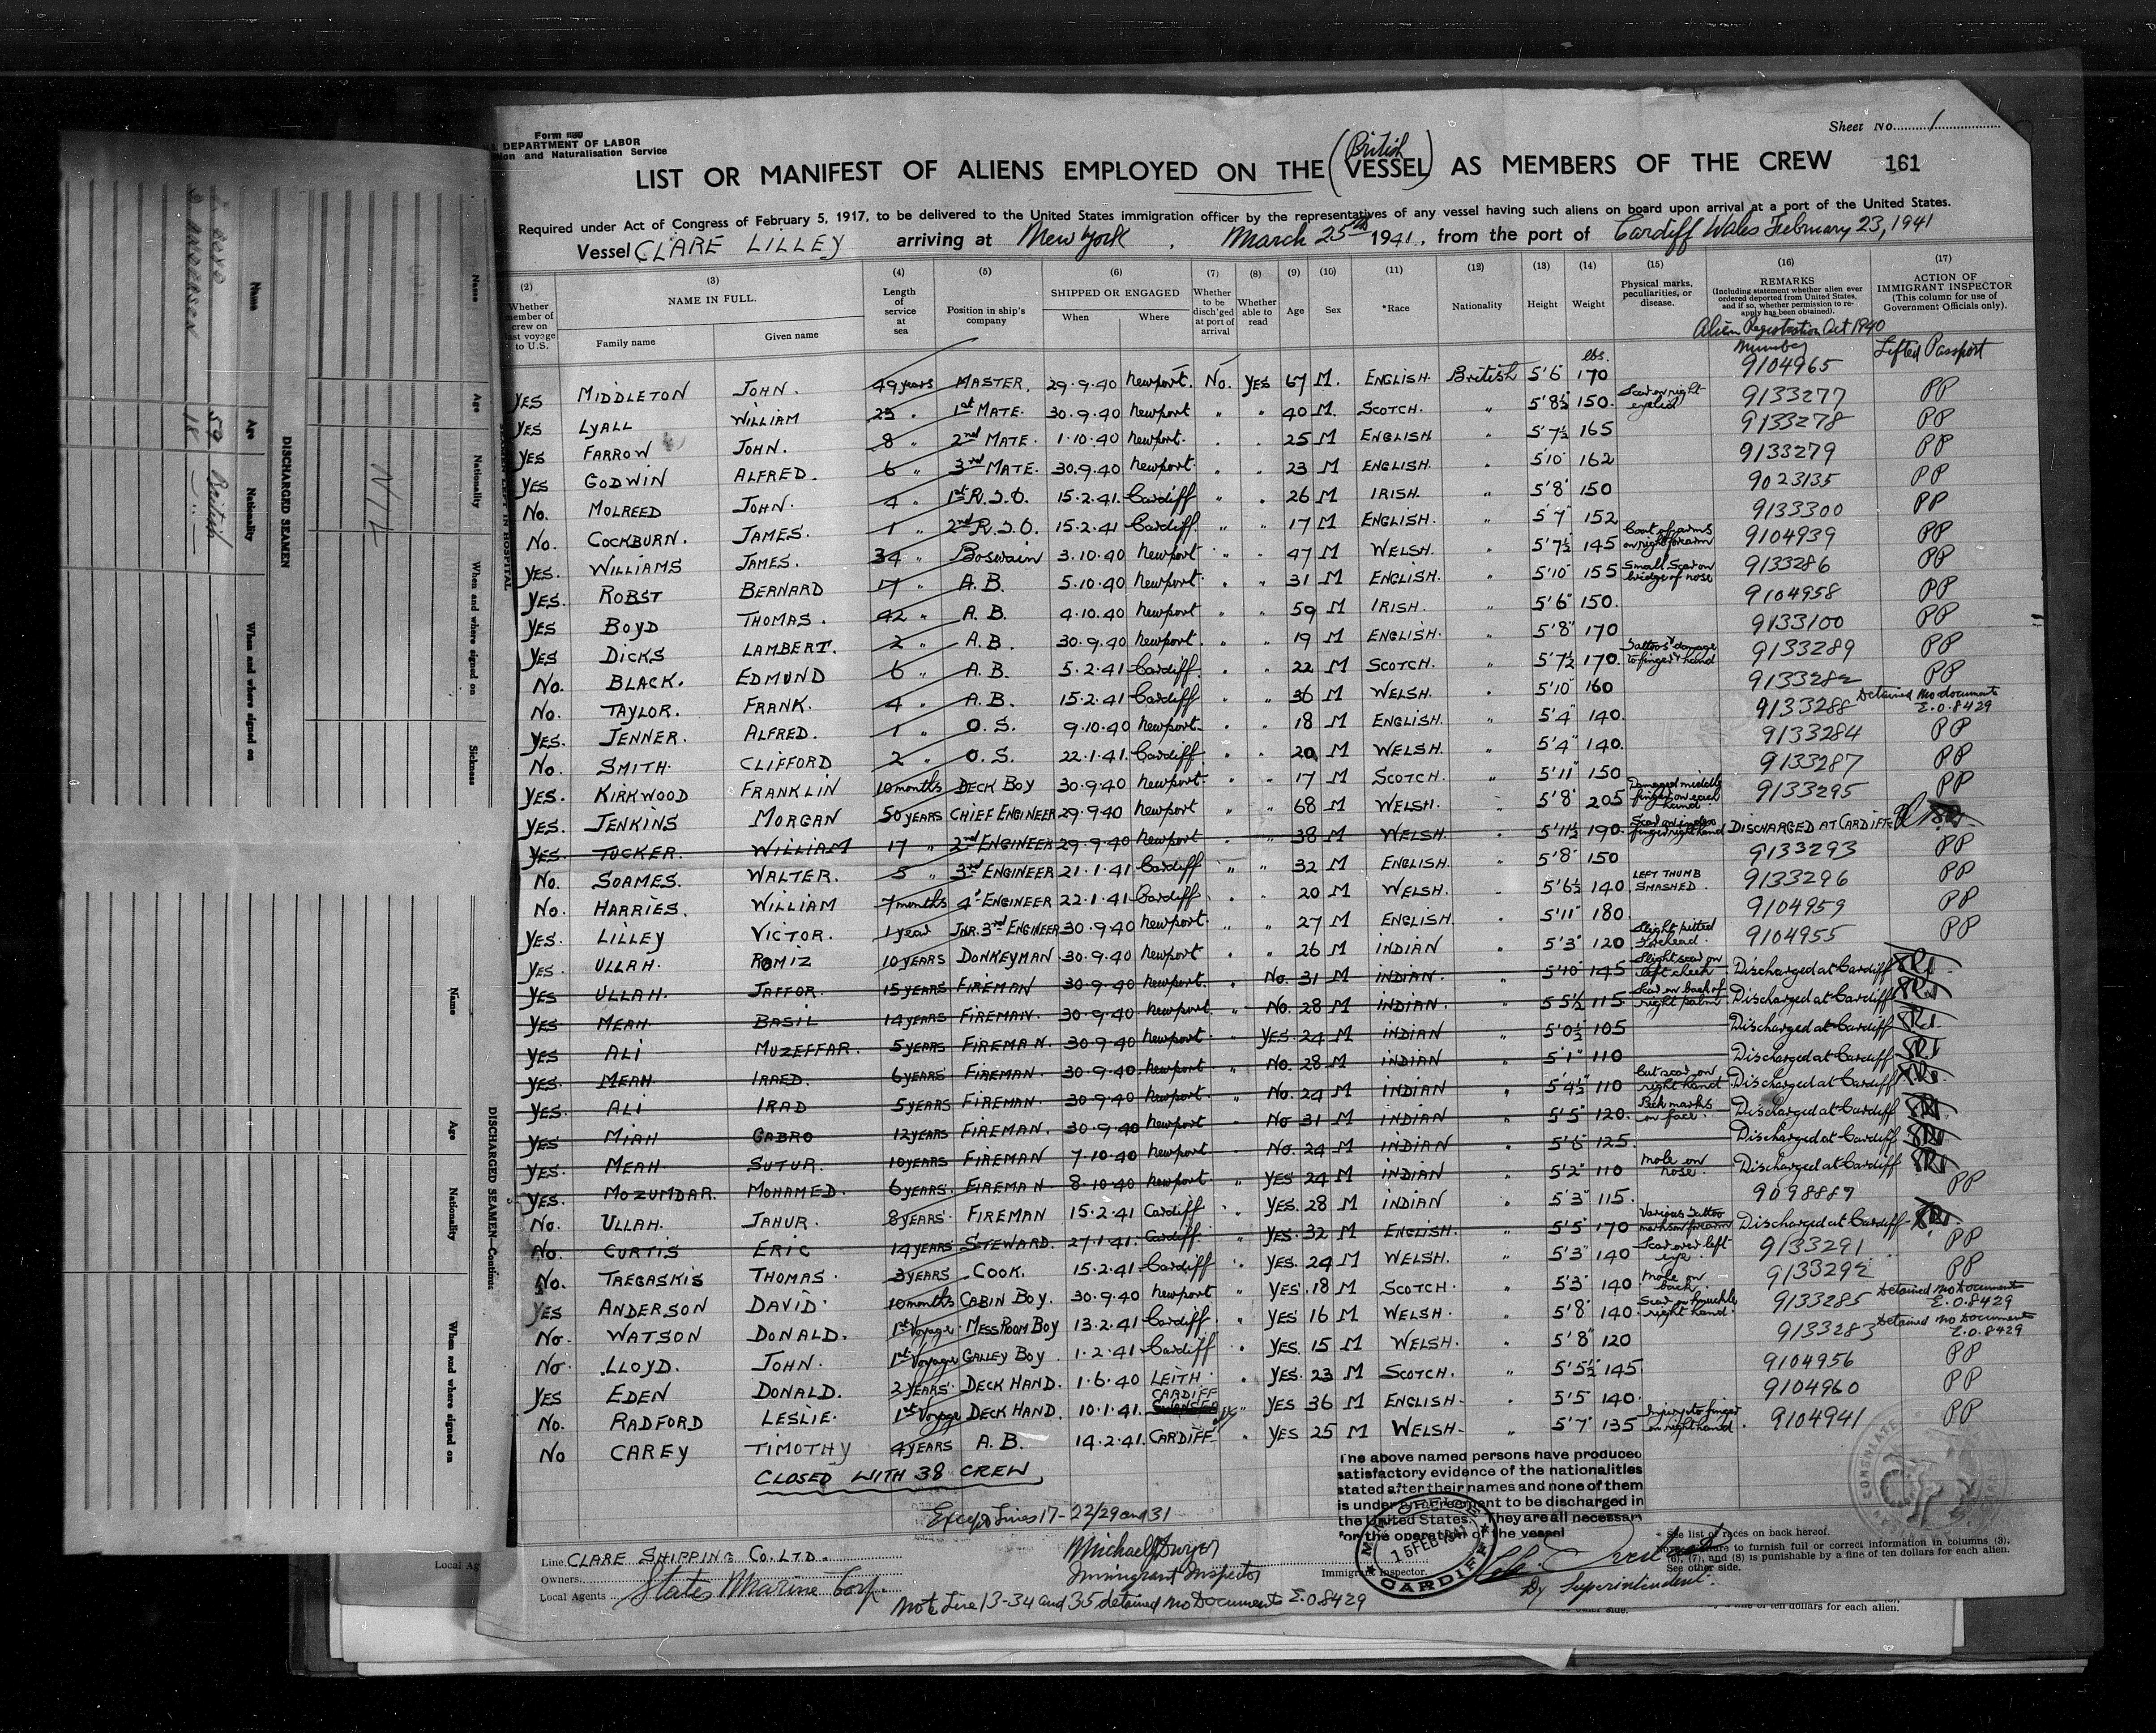 Form 680
U.S. DEPARTMENT OF LABOR
and Naturalisation Service
Sheet No. 1
LIST OR MANIFEST OF ALIENS EMPLOYED ON THE (British VESSEL) AS MEMBERS OF THE CREW 161
Required under Act of Congress of February 5, 1917, to be delivered to the United States immigration officer by the representatives of any vessel having such aliens on board upon arrival at a port of the United States.
Vessel CLARE LILLEY arriving at New York, March 25th 1941, from the port of Cardiff Wales February 23, 1941
(2) (3) (4) (5) (6) (7) (8) (9) (10) (11) (12) (13) (14) (15) (16) (17)
Whether member of crew on last voyage to U.S.
NAME IN FULL.
Family name
Given name
Length of service at sea
Position in ship's company
SHIPPED OR ENGAGED
When
Where
Whether to be disch'ged at port of arrival
Whether able to read
Age
Sex
*Race
Nationality
Height
Weight
Physical marks, peculiarities, or disease.
REMARKS
(Including statement whether alien ever ordered deported from United States, and if so, whether permission to re-apply has been obtained).
Alien Registration Act 1940
Number
ACTION OF IMMIGRANT INSPECTOR
(This column for use of Government Officials only).
Lifted Passport
lbs.
YES MIDDLETON JOHN. 49 years MASTER. 29.9.40 Newport. No. YES 67 M. ENGLISH. British 5'6 170 9104965
YES LYALL WILLIAM 25 " 1st MATE. 30.9.40 Newport " " 40 M. SCOTCH. " 5'8½ 150. Scar on right eyelid 9133277 PP
YES FARROW JOHN. 8 " 2nd MATE. 1.10.40 Newport. " " 25 M ENGLISH " 5'7½ 165 9133278 PP
YES GODWIN ALFRED. 6 " 3rd MATE. 30.9.40 Newport. " " 23 M ENGLISH. " 5'10" 162 9133279 PP
No. MOLREED JOHN. 4 " 1st R.S.O. 15.2.41. Cardiff " " 26 M IRISH. " 5'8" 150 9023135 PP
No. COCKBURN. JAMES. 1 " 2nd R.S.O. 15.2.41 Cardiff. " " 17 M ENGLISH. " 5'7" 152 9133300 PP
YES. WILLIAMS JAMES. 34 " Boswain 3.10.40 Newport " " 47 M WELSH. " 5'7½ 145 Coat of arms on right forearm 9104939 PP
YES. ROBST BERNARD 17 " A.B. 5.10.40 Newport. " " 31 M ENGLISH. " 5'10" 155 Small Scar on bridge of nose 9133286 PP
YES BOYD THOMAS. 42 " A.B. 4.10.40 Newport. " " 59 M IRISH. " 5'6" 150. 9104958 PP
YES DICKS LAMBERT. 2 " A.B. 30.9.40 Newport. " " 19 M ENGLISH. " 5'8" 170 9133100 PP
No. BLACK. EDMUND 6 " A.B. 5.2.41 Cardiff. " " 22 M SCOTCH. " 5'7½ 170. Tattoos & damage to finger & hand 9133289 PP
No. TAYLOR. FRANK. 4 " A.B. 15.2.41 Cardiff " " 36 M WELSH. " 5'10" 160 9133282 PP
YES. JENNER. ALFRED. 1 " O.S. 9.10.40 Newport. " " 18 M ENGLISH. " 5'4" 140. 9133288 Detained No documents E.O.8429
No. SMITH. CLIFFORD 2 " O.S. 22.1.41. Cardiff. " " 20 M WELSH. " 5'4" 140. 9133284 PP
YES. KIRKWOOD FRANKLIN 10 months DECK BOY 30.9.40 Newport. " " 17 M SCOTCH. " 5'11" 150 9133287 PP
YES. JENKINS MORGAN 50 YEARS CHIEF ENGINEER 29.9.40 Newport " " 68 M WELSH. " 5'8" 205 Damaged middle finger on each hand 9133295 PP
YES. TUCKER. WILLIAM 17 " 2nd ENGINEER 29.9.40 Newport " " 38 M WELSH. " 5'11½ 190. Scar on index finger right hand DISCHARGED AT CARDIFF.
No. SOAMES. WALTER. 5 " 3rd ENGINEER 21.1.41 Cardiff " " 32 M ENGLISH. " 5'8" 150 9133293 PP
No. HARRIES. WILLIAM 7 months 4th ENGINEER 22.1.41 Cardiff. " " 20 M WELSH. " 5'6½ 140 LEFT THUMB SMASHED. 9133296 PP
YES. LILLEY VICTOR. 1 year JNR. 3rd ENGINEER 30.9.40 Newport. " " 27 M ENGLISH. " 5'11" 180. 9104959 PP
YES. ULLAH. ROMIZ 10 YEARS DONKEYMAN 30.9.40 Newport. " " 26 M INDIAN " 5'3" 120 Slight pitted Forehead. 9104955 PP
YES ULLAH. JAFFOR. 15 YEARS FIREMAN 30.9.40 Newport. " No. 31 M INDIAN. " 5'10" 145 Slight scar on left cheek Discharged at Cardiff
YES MEAH. BASIL 14 YEARS FIREMAN. 30.9.40 Newport. " No. 28 M INDIAN. " 5'5½ 115 Scar on back of right palm Discharged at Cardiff
YES ALI MUZEFFAR. 5 YEARS FIREMAN. 30.9.40 Newport. " YES. 24 M INDIAN " 5'0½ 105 Discharged at Cardiff
YES. MEAH IRRED. 6 YEARS FIREMAN. 30.9.40. Newport. " No. 28 M INDIAN " 5'1" 110 Discharged at Cardiff
YES. ALI IRAD 5 YEARS FIREMAN. 30.9.40 Newport. " No. 24 M INDIAN " 5'4½ 110 Cut scar on right hand Discharged at Cardiff
YES MIAH GABRO 12 YEARS FIREMAN. 30.9.40 Newport " No 31 M INDIAN " 5'5" 120. Pock marks on face. Discharged at Cardiff
YES. MEAH. SUTUR. 10 YEARS FIREMAN 7.10.40 Newport " No. 24 M INDIAN " 5'6" 125. Discharged at Cardiff
YES. MOZUMDAR. MOHAMED. 6 YEARS. FIREMAN 8.10.40 Newport " YES 24 M INDIAN " 5'2" 110 Mole on nose. Discharged at Cardiff
No. ULLAH. JAHUR. 8 YEARS FIREMAN 15.2.41 Cardiff " YES. 28 M INDIAN " 5'3" 115. 9098889 PP
No. CURTIS ERIC 14 YEARS STEWARD. 27.1.41. Cardiff. " YES. 32 M ENGLISH. " 5'5" 170 Various Tattoo marks on forearm Discharged at Cardiff
No. TREGASKIS THOMAS. 3 YEARS COOK. 15.2.41 Cardiff " YES. 24 M WELSH. " 5'3" 140 Scar over left eye. 9133291 PP
YES ANDERSON DAVID. 10 months CABIN BOY. 30.9.40 Newport " YES. 18 M SCOTCH. " 5'3" 140. Mole on back. 9133292 PP
No. WATSON DONALD. 1st Voyage MESSROOM BOY 13.2.41 Cardiff. " YES 16 M WELSH. " 5'8" 140. Scar on knuckle right hand. 9133285 Detained No Document E.O.8429
No. LLOYD. JOHN. 1st Voyage GALLEY BOY. 1.2.41 Cardiff " YES. 15 M WELSH. " 5'8" 120 9133283 Detained No Document E.O.8429
YES EDEN DONALD. 2 YEARS DECK HAND. 1.6.40 LEITH. " YES. 23 M SCOTCH. " 5'5½ 145. 9104956 PP
No. RADFORD LESLIE. 1st Voyage DECK HAND. 10.1.41. CARDIFF " YES 36 M ENGLISH. " 5'5" 140. 9104960 PP
No CAREY TIMOTHY 4 YEARS A.B. 14.2.41. CARDIFF " YES 25 M WELSH. " 5'7" 135 Injury to finger on right hand. 9104941 PP
CLOSED WITH 38 CREW
Except Lines 17-22/29 and 31
The above named persons have produced
satisfactory evidence of the nationalities
stated after their names and none of them
is under agreement to be discharged in
the United States. They are all necessary
for the operation of the vessel
15 FEB 1941
CARDIFF
CONSULATE
Line CLARE SHIPPING CO. LTD.
Owners
Local Agents States Marine Corp.
Michael Dwyer
Immigrant Inspector
Immigrant Inspector.
Dy Superintendent.
Note Line 13-34 and 35 detained No Documents E.O 8429
* See list of races on back hereof.
Note.—Failure to furnish full or correct information in columns (3), (6), (7), and (8) is punishable by a fine of ten dollars for each alien.
See other side.
of ten dollars for each alien.
Local Ag
SEAMEN LEFT IN HOSPITAL
Name Age Nationality When and where signed on Sickness
NIL
DISCHARGED SEAMEN
Name Age Nationality When and where signed on
T. BOYD 59 British
D ANDERSON 18 "
DISCHARGED SEAMEN—Continued
Name Age Nationality When and where signed on